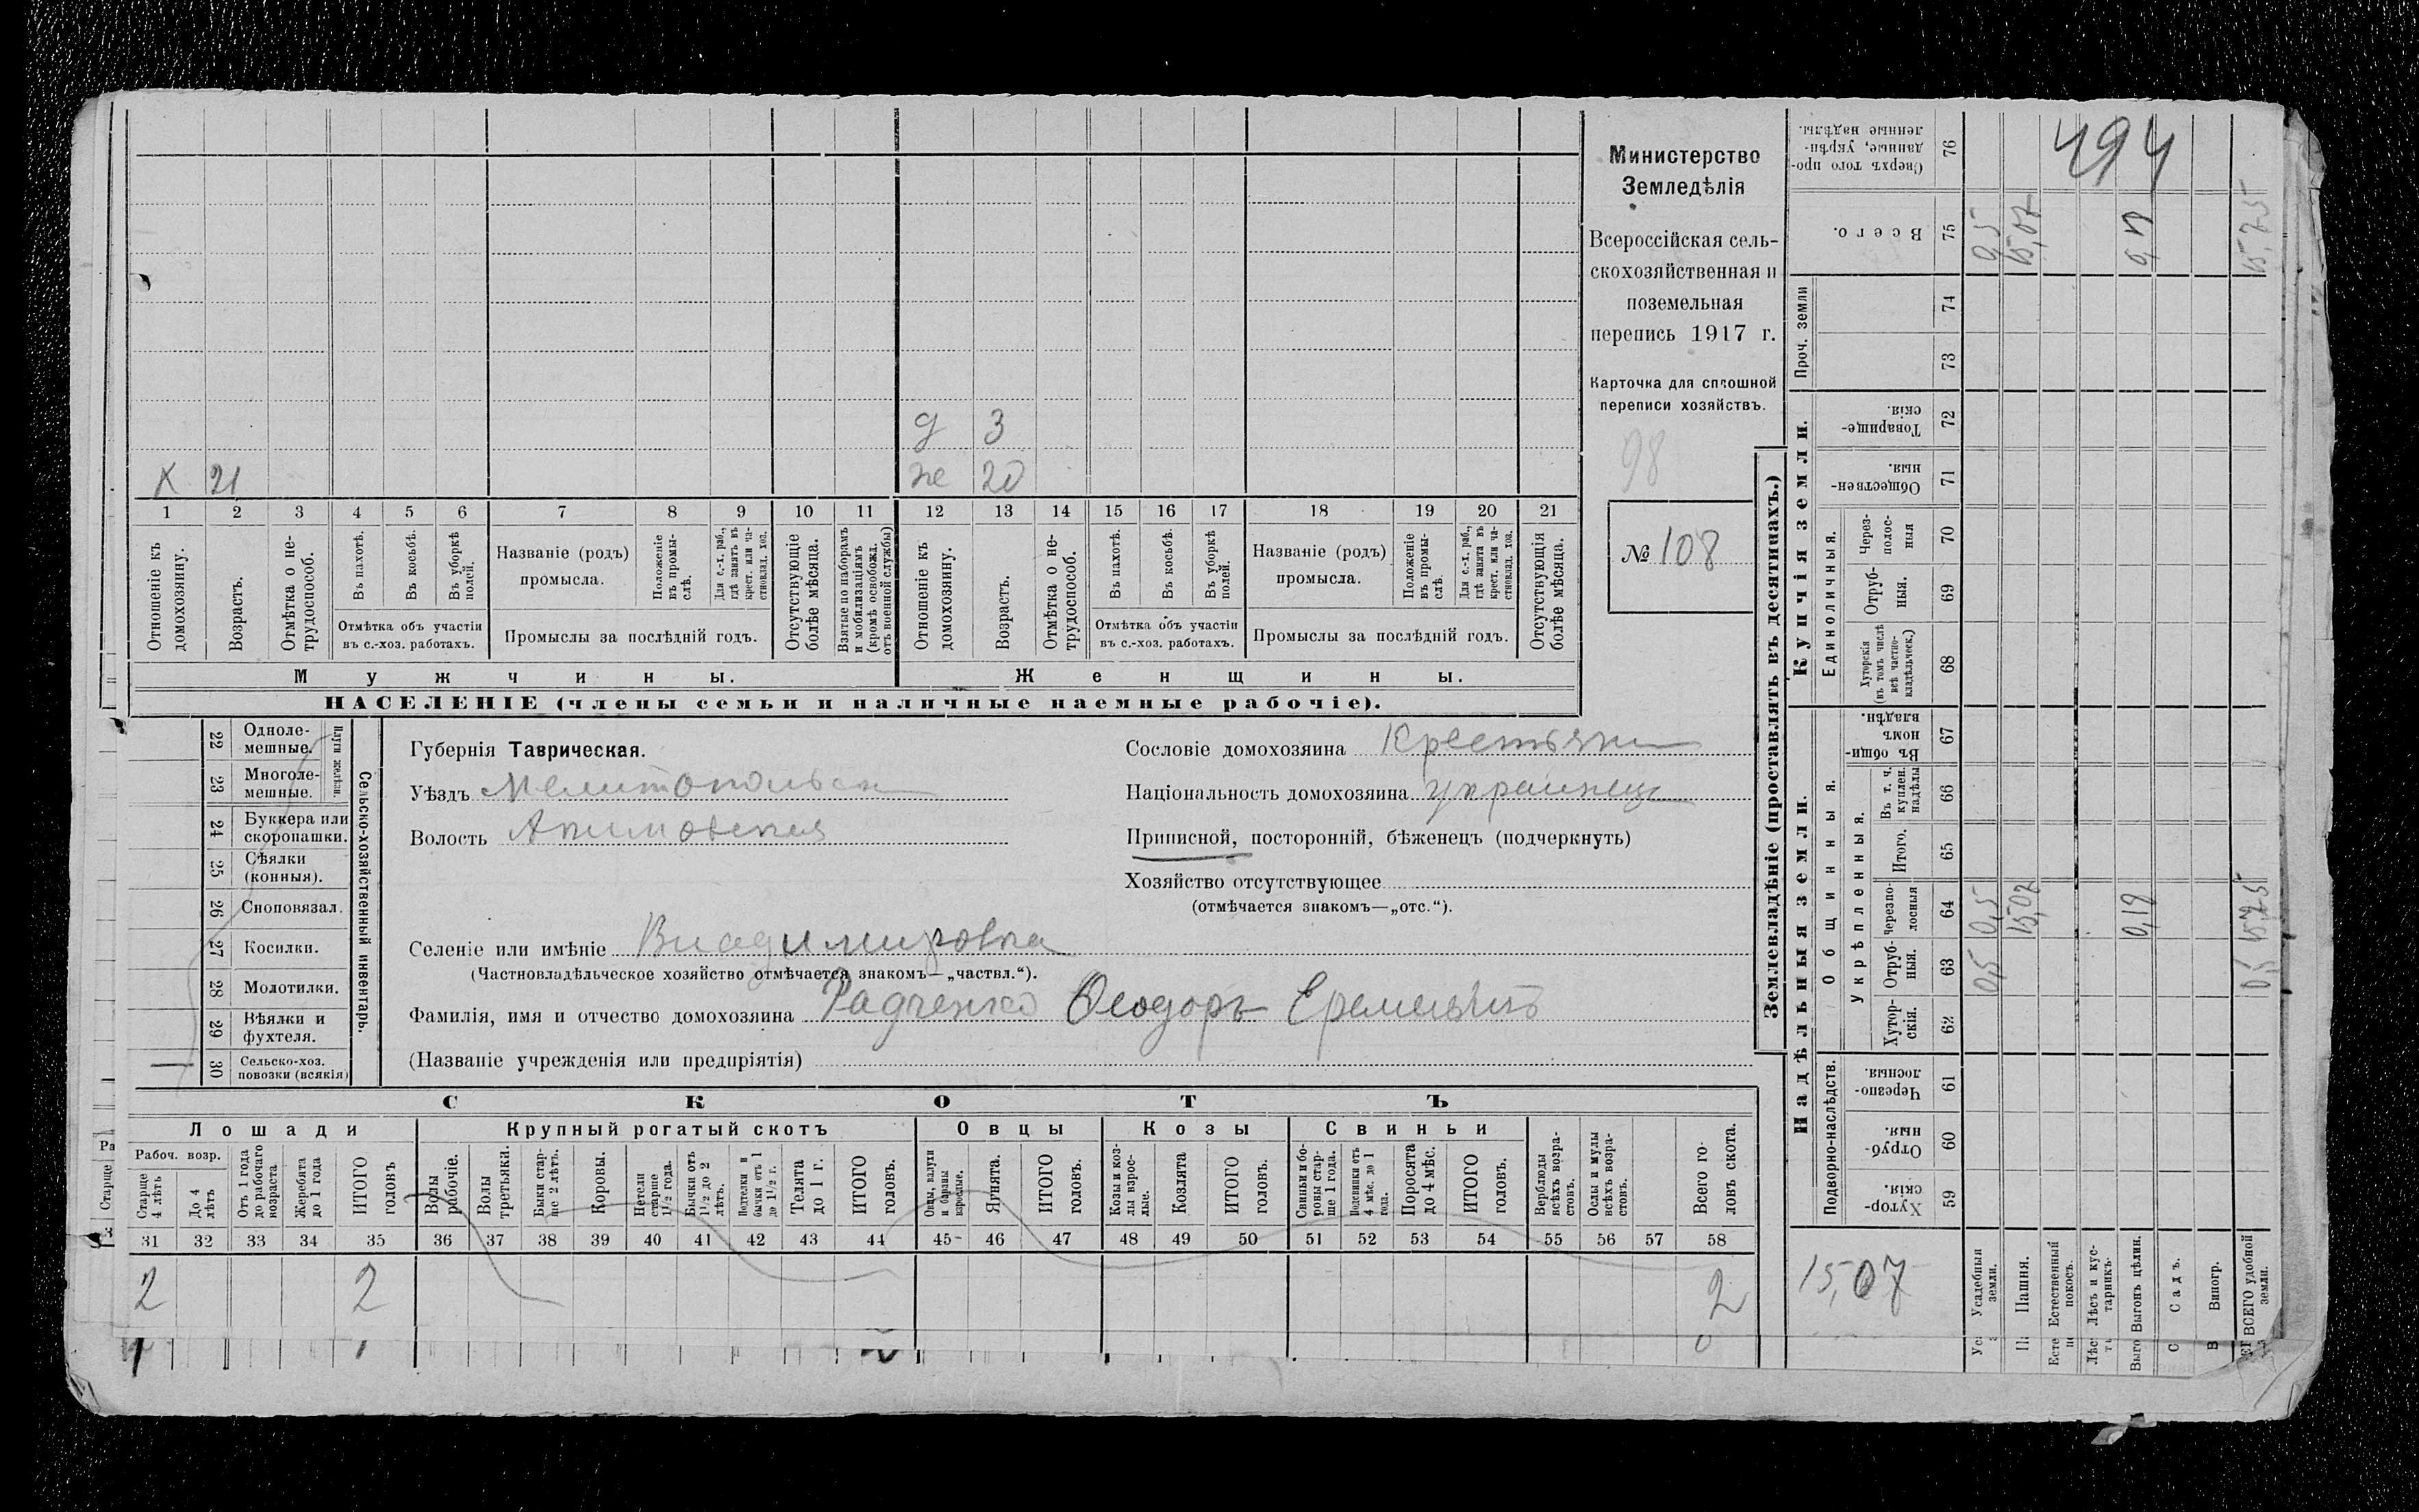 Министерство
Земледѣлія
Всероссійская сель-
скохозяйственная и
поземельная
перепись 1917 г.
Карточка для сплошной
переписи хозяйствъ.
98
№ 108
д 3
х 21
же 20
1 2 3 4 5 6 7 8 9 10 11 12 13 14 15 16 17 18 19 20 21
Отношеніе къ домохозяину.
Возрастъ.
Отмѣтка о не-трудоспособ.
Въ пахотѣ.
Въ косьбѣ.
Въ уборкѣ полей.
Отмѣтка объ участіи
въ с.-хоз. работахъ.
Названіе (родъ)
промысла.
Положеніе въ промы-слѣ.
Для с.-х. раб., гдѣ занятъ въ крест. или ча-стновлад. хоз.
Промыслы за послѣдній годъ.
Отсутствующіе болѣе мѣсяца.
Взятые по наборамъ и мобилизаціямъ (кромѣ освобожд. отъ военной службы)
Отношеніе къ домохозяину.
Возрастъ.
Отмѣтка о не-трудоспособ.
Въ пахотѣ.
Въ косьбѣ.
Въ уборкѣ полей.
Отмѣтка объ участіи
въ с.-хоз. работахъ.
Названіе (родъ)
промысла.
Положеніе въ промы-слѣ.
Для с.-х. раб., гдѣ занята въ крест. или ча-стновлад. хоз.
Промыслы за послѣдній годъ.
Отсутствующія болѣе мѣсяца.
Мужчины.
Женщины.
НАСЕЛЕНІЕ (члены семьи и наличные наемные рабочіе).
Сельско-хозяйственный инвентарь.
Плуги желѣзн.
22 Одноле-мешные.
23 Многоле-мешные.
24 Буккера или скоропашки.
25 Сѣялки (конныя).
26 Сноповязал.
27 Косилки.
28 Молотилки.
29 Вѣялки и фухтеля.
30 Сельско-хоз. повозки (всякія)
Губернія Таврическая.
Уѣздъ Мелитопольск
Волость Акимовская
Сословіе домохозяина Крестьянин
Національность домохозяина украинецъ
Приписной, посторонній, бѣженецъ (подчеркнуть)
Хозяйство отсутствующее
(отмѣчается знакомъ—„отс.“).
Селеніе или имѣніе Владимировка
(Частновладѣльческое хозяйство отмѣчается знакомъ—„частвл.“).
Фамилія, имя и отчество домохозяина Радченко Ѳеодоръ Еремеевичъ
(Названіе учрежденія или предпріятія)
СКОТЪ
Лошади
Крупный рогатый скотъ
Овцы
Козы
Свиньи
Рабоч. возр.
Старше 4 лѣтъ
До 4 лѣтъ
Отъ 1 года до рабочаго возраста
Жеребята до 1 года
ИТОГО головъ
Волы рабочіе.
Волы третьяки.
Быки стар-ше 2 лѣтъ.
Коровы.
Нетели старше 1½ года.
Бычки отъ 1½ до 2 лѣтъ.
Подтелки и бычки отъ 1 до 1½ г.
Телята до 1 г.
ИТОГО головъ.
Овцы, валухи и бараны взрослые.
Ягнята.
ИТОГО головъ.
Козы и коз-лы взрос-лые.
Козлята
ИТОГО головъ.
Свиньи и бо-ровы стар-ше 1 года.
Подсвинки отъ 4 мѣс. до 1 года.
Поросята до 4 мѣс.
ИТОГО головъ.
Верблюды всѣхъ возра-стовъ.
Ослы и мулы всѣхъ возра-стовъ.
Всего го-ловъ скота.
31 32 33 34 35 36 37 38 39 40 41 42 43 44 45 46 47 48 49 50 51 52 53 54 55 56 57 58
2 2 2
Землевладѣніе (проставлять въ десятинахъ.)
Надѣльныя земли.
Купчія земли.
Подворно-наслѣдств.
Общинныя.
Укрѣпленныя.
Единоличныя.
Проч. земли
Хутор-скія. 59
Отруб-ныя. 60
Черезпо-лосныя. 61
Хутор-скія. 62
Отруб-ныя. 63
черезпо-лосныя 64
Итого. 65
Въ т. ч. куплен. надѣлы 66
Въ общи-номъ владѣн. 67
Хуторскія (въ томъ числѣ всѣ частно-владѣльческ.) 68
Отруб-ныя. 69
Через-полос-ныя 70
Обществен-ныя. 71
Товарище-скія. 72
73
74
Всего. 75
Сверхъ того про-данные, укрѣп-ленные надѣлы. 76
494
15,07
Усадебныя земли.
Пашня.
Естественный покосъ.
Лѣсъ и кус-тарникъ.
Выгонъ цѣлин.
Садъ.
Виногр.
ВСЕГО удобной земли.
0,5 0,5 0,5
15,07 15,07
0,19
0,5 15,725 15,725